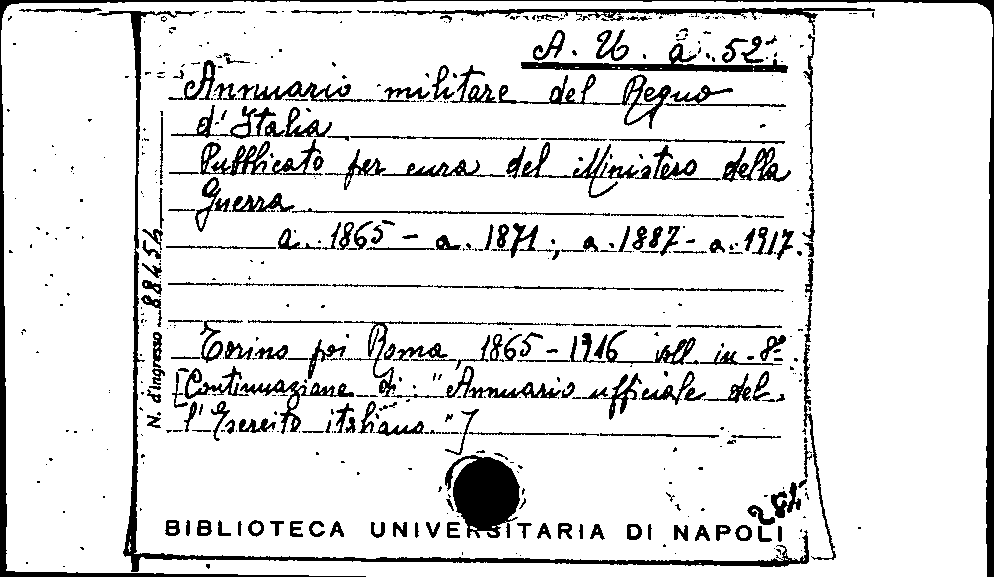 A. U. a. 52.
Annuario militare del Regno
d'Italia
Pubblicato per cura del Ministero della
Guerra.
a. 1865 - a. 1871; a. 1887 - a. 1917.
Torino poi Roma, 1865 - 1916 voll. in-8º.
[Continuazione di: "Annuario ufficiale del-
l'Esercito italiano."]
N. d'Ingresso 88454
284
BIBLIOTECA UNIVERSITARIA DI NAPOLI